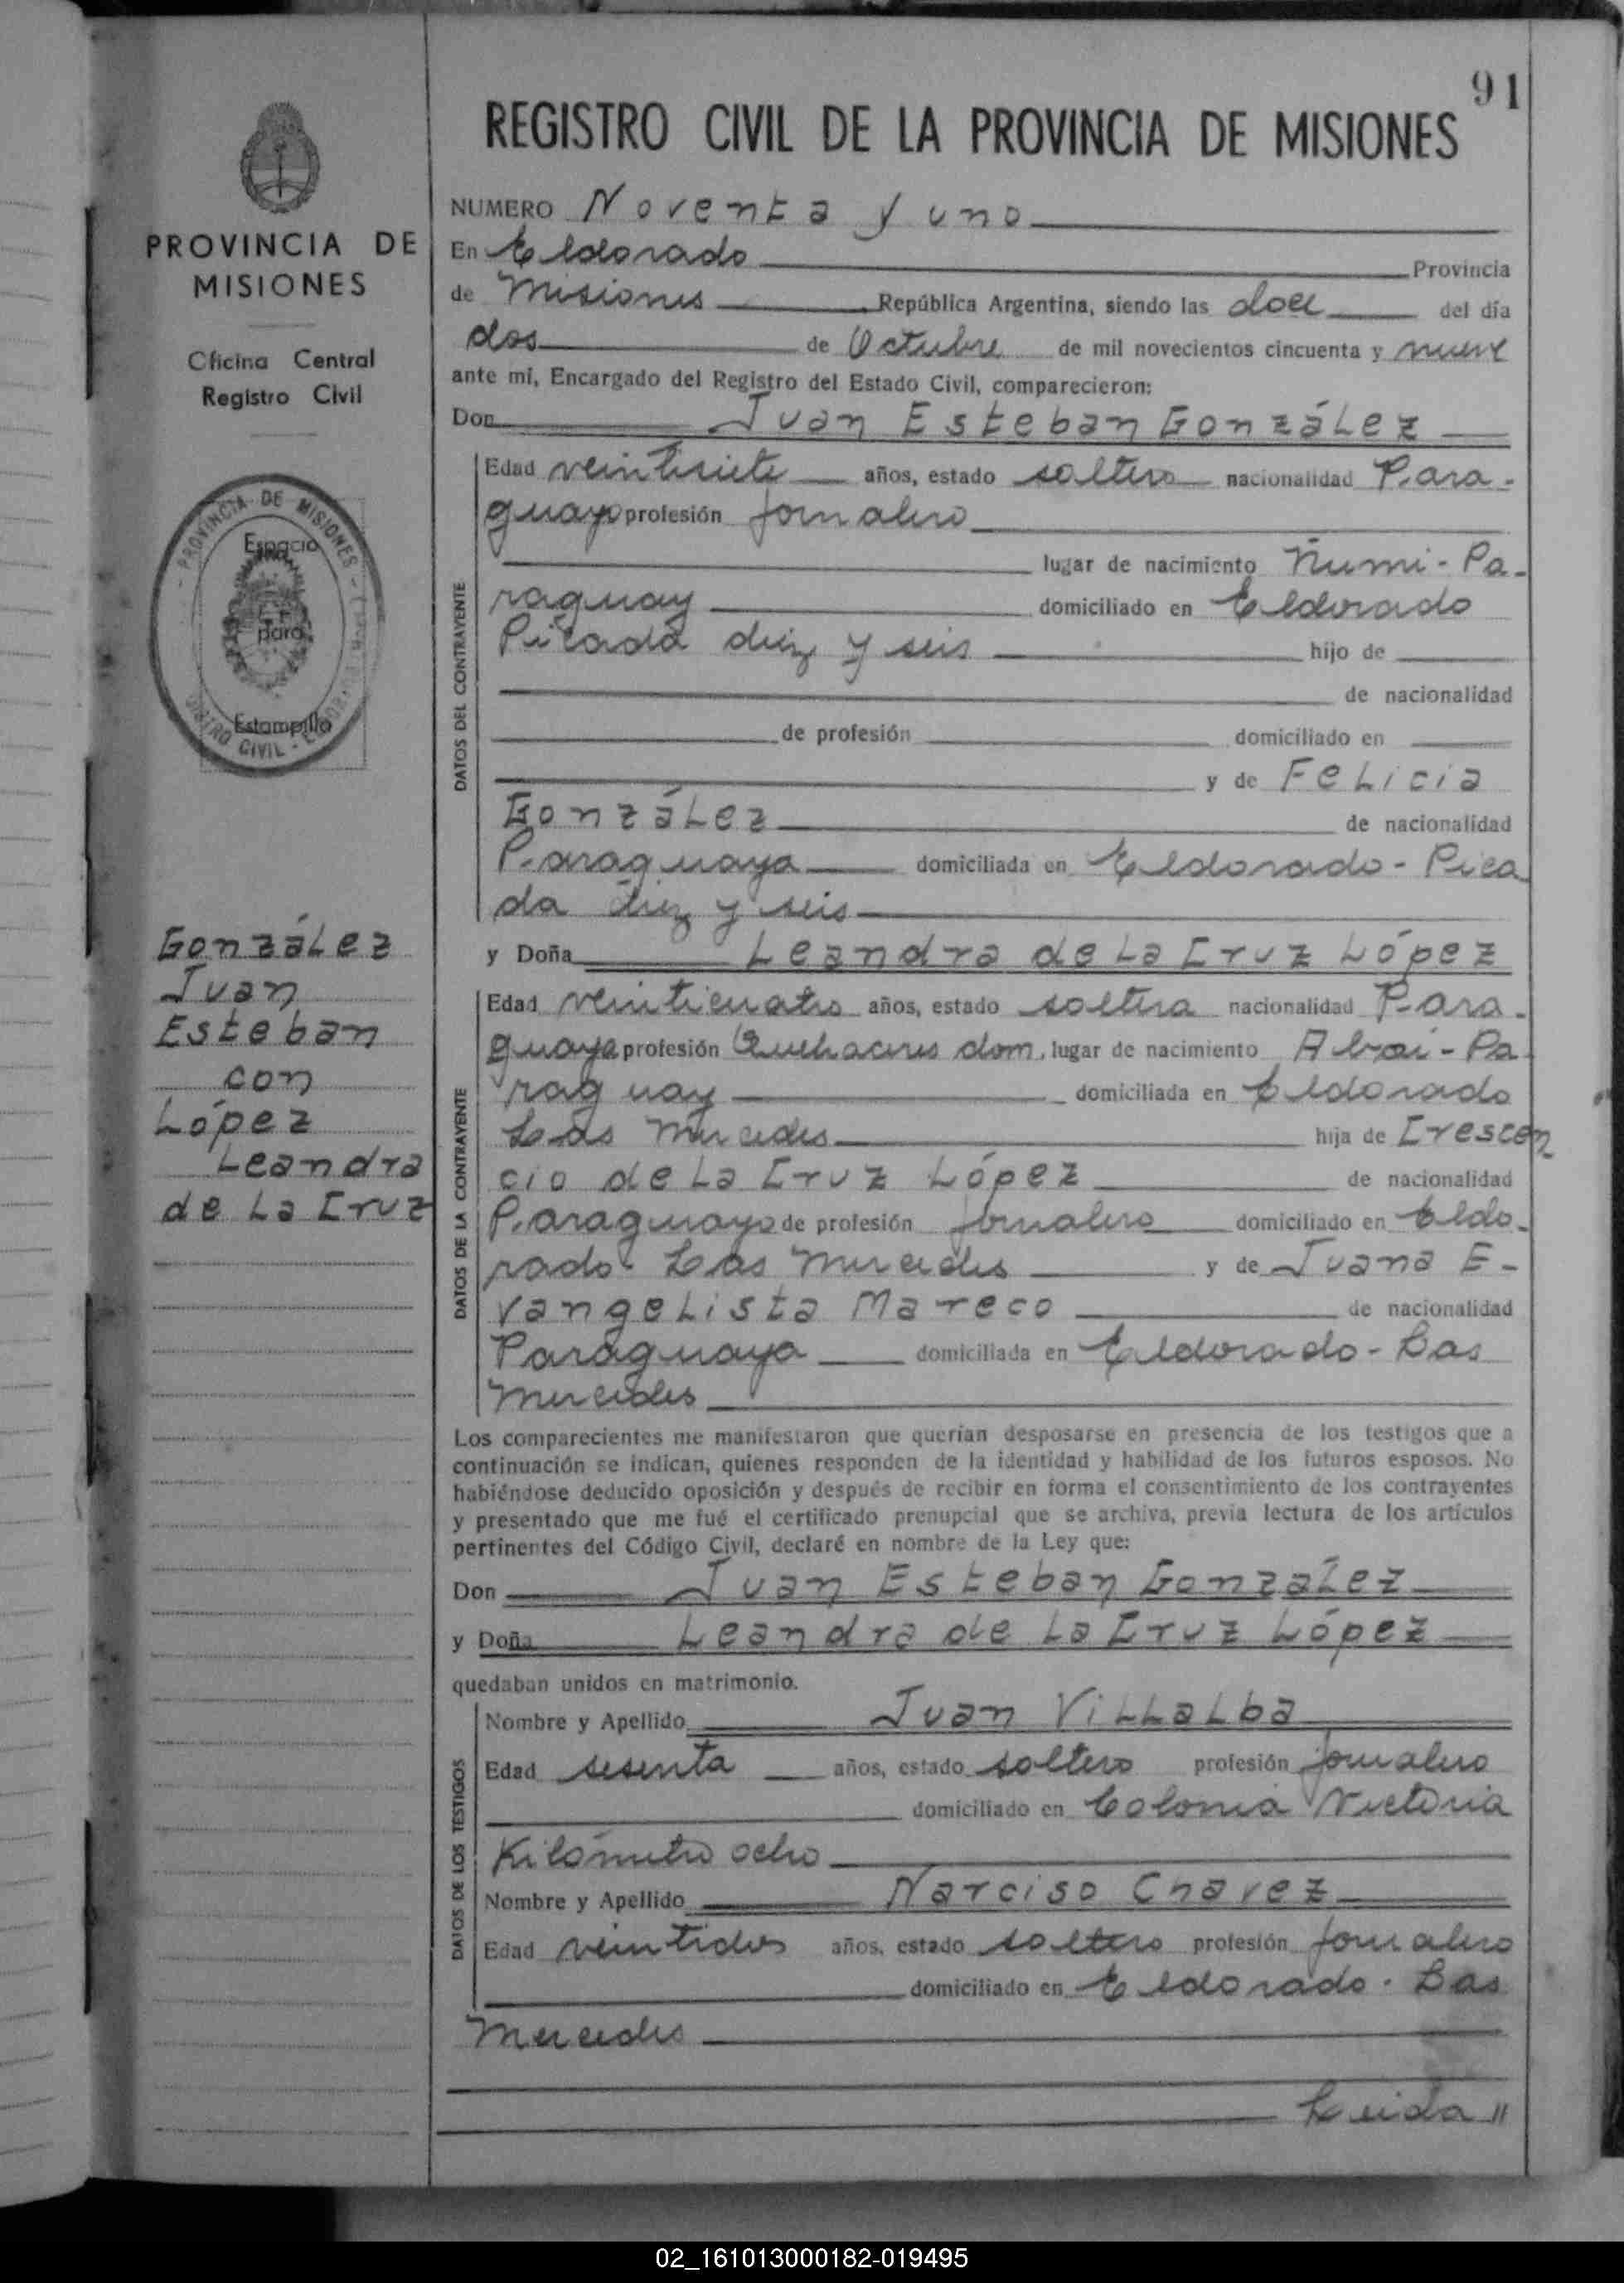 91
REGISTRO CIVIL DE LA PROVINCIA DE MISIONES
PROVINCIA DE
MISIONES
Oficina Central
Registro Civil
- PROVINCIA DE MISIONES -
Espacio
para
Estampilla
CIVIL -
González
Juan
Esteban
con
López
Leandra
de la Cruz
NUMERO Noventa y uno
En Eldorado Provincia
de Misiones República Argentina, siendo las doce del día
dos de Octubre de mil novecientos cincuenta y nueve
ante mí, Encargado del Registro del Estado Civil, comparecieron:
Don Juan Esteban González
DATOS DEL CONTRAYENTE
Edad veintisiete años, estado soltero nacionalidad Para-
guayo profesión jornalero
lugar de nacimiento Ñumi - Pa-
raguay domiciliado en Eldorado
Picada diez y seis hijo de
de nacionalidad
de profesión domiciliado en
y de Felicia
González de nacionalidad
Paraguaya domiciliada en Eldorado - Pica
da diez y seis
y Doña Leandra de la Cruz López
DATOS DE LA CONTRAYENTE
Edad veinticuatro años, estado soltera nacionalidad Para-
guaya profesión Quehaceres dom. lugar de nacimiento Abai - Pa
raguay domiciliada en Eldorado
Las Mercedes hija de Crescen
cio de la Cruz López de nacionalidad
Paraguayo de profesión jornalero domiciliado en Eldo-
rado - Las Mercedes y de Juana E-
vangelista Mareco de nacionalidad
Paraguaya domiciliada en Eldorado - Las
Mercedes
Los comparecientes me manifestaron que querían desposarse en presencia de los testigos que a
continuación se indican, quienes responden de la identidad y habilidad de los futuros esposos. No
habiéndose deducido oposición y después de recibir en forma el consentimiento de los contrayentes
y presentado que me fué el certificado prenupcial que se archiva, previa lectura de los artículos
pertinentes del Código Civil, declaré en nombre de la Ley que:
Don Juan Esteban González
y Doña Leandra de la Cruz López
quedaban unidos en matrimonio.
DATOS DE LOS TESTIGOS
Nombre y Apellido Juan Villalba
Edad sesenta años, estado soltero profesión jornalero
domiciliado en Colonia Victoria
Kilómetro ocho
Nombre y Apellido Narciso Chavez
Edad veintidos años, estado soltero profesión jornalero
domiciliado en Eldorado - Las
Mercedes
Leida //
02_161013000182-019495